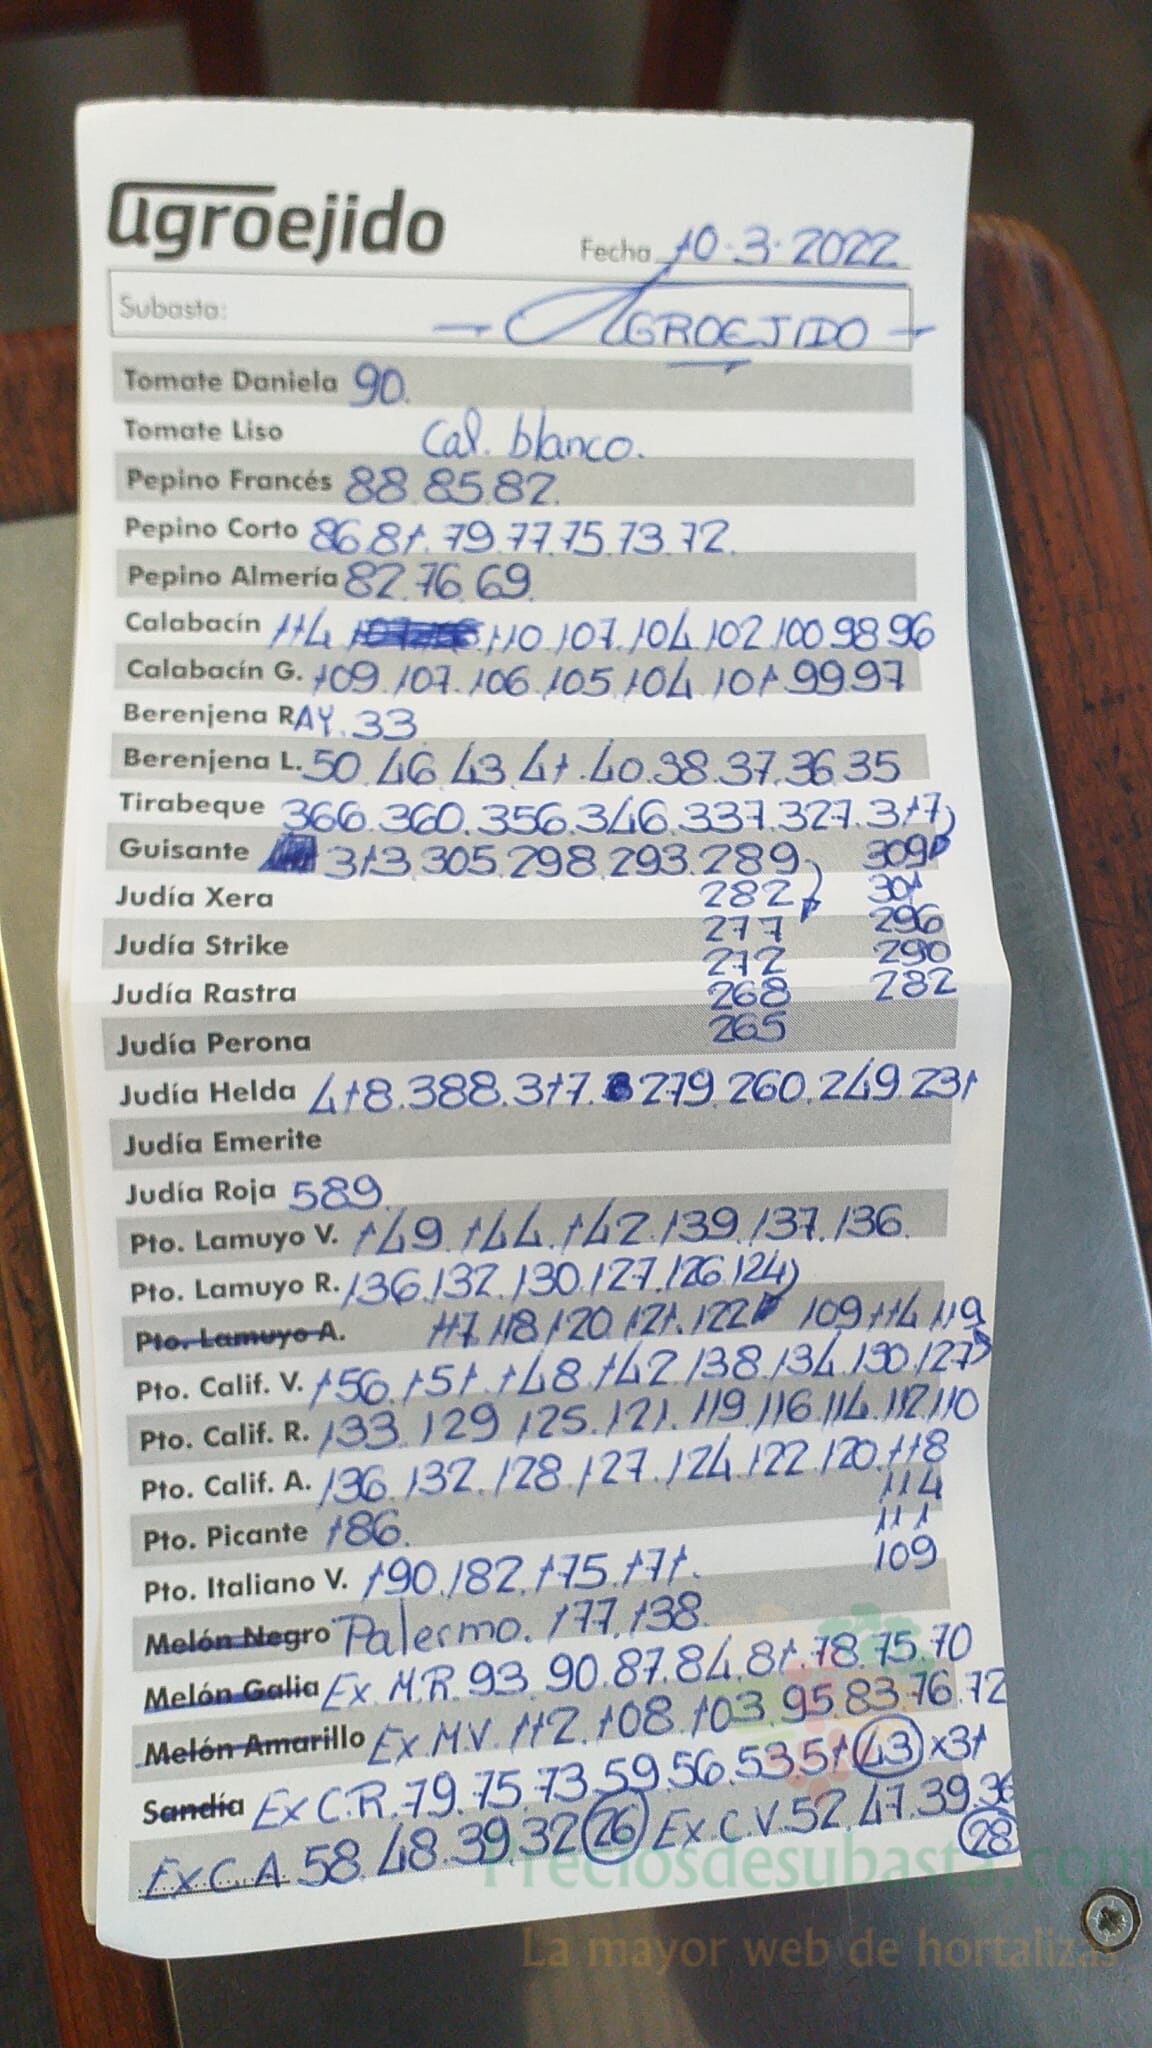 agroejido
Fecha 10.3.2022
Subasta: - AGROEJIDO -
Tomate Daniela 90.
Tomate Liso Cal. blanco.
Pepino Francés 88.85.82.
Pepino Corto 86.81.79.77.75.73.72.
Pepino Almería 82.76.69.
Calabacín 114.110.107.104.102.100.98.96
Calabacín G. 109.107.106.105.104.101.99.97
Berenjena RAY.33
Berenjena L. 50.46.43.41.40.38.37.36.35
Tirabeque 366.360.356.346.337.327.317)
Guisante 313.305.298.293.289) 309
Judía Xera 282 301
Judía Strike 277 296
272 290
Judía Rastra 268 282
Judía Perona 265
Judía Helda 418.388.317.279.260.249.231
Judía Emerite
Judía Roja 589.
Pto. Lamuyo V. 149.144.142.139.137.136.
Pto. Lamuyo R. 136.132.130.127.126.124)
Pto. Lamuyo A. 117.118.120.121.122 109.114.119
Pto. Calif. V. 156.151.148.142.138.134.130.127)
Pto. Calif. R. 133.129.125.121.119.116.114.112.110
Pto. Calif. A. 136.132.128.127.124.122.120.118
114
Pto. Picante 186. 111
Pto. Italiano V. 190.182.175.171. 109
Melón Negro Palermo. 177.138.
Melón Galia Ex M.R.93.90.87.84.81.78.75.70
Melón Amarillo Ex M.V.112.108.103.95.83.76.72
Sandía Ex C.R.79.75.73.59.56.53.51 43 x31
Ex C.A.58.48.39.32 26 Ex C.V.52.47.39.36
28
Preciosdesubasta.com
La mayor web de hortalizas